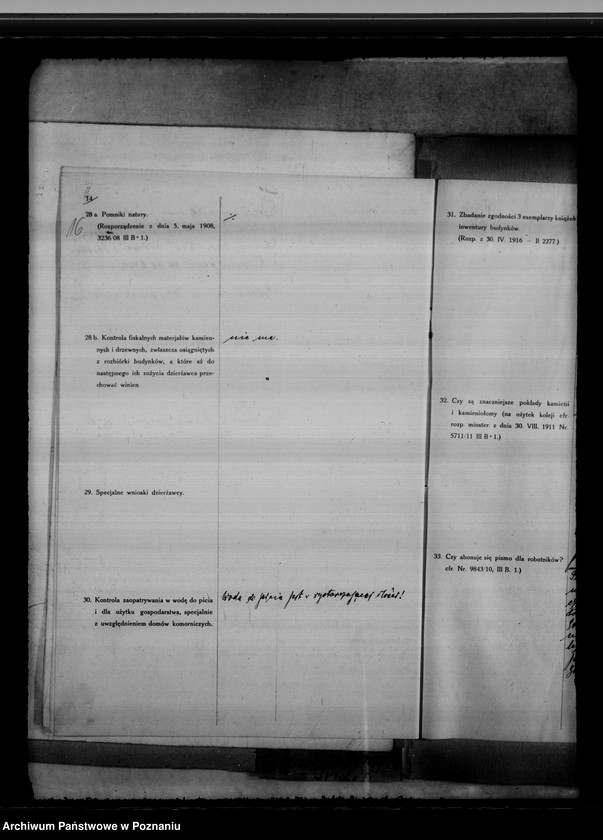 14
16
28 a. Pomniki natury.
(Rozporządzenie z dnia 5. maja 1908,
3236/08 III B a 1.)
28 b. Kontrola fiskalnych materjałów kamien-
nych i drzewnych, zwłaszcza osiągniętych
z rozbiórki budynków, a które aż do
następnego ich zużycia dzierżawca prze-
chować winien.
nie ma.
29. Specjalne wnioski dzierżawcy.
30. Kontrola zaopatrywania w wodę do picia
i dla użytku gospodarstwa, specjalnie
z uwzględnieniem domów komorniczych.
Woda do picia jest w wystarczającej ilości!
31. Zbadanie zgodności 3 exemplarzy książek
inwentury budynków.
(Rozp. z 30. IV. 1916 – II 2277.)
32. Czy są znaczniejsze pokłady kamieni
i kamieniołomy (na użytek kolei cfr.
rozp. minster. z dnia 30. VIII. 1911 Nr.
5711/11 III B a 1.)
33. Czy abonuje się pismo dla robotników?
cfr. Nr. 9843/10, III B. 1.)
Archiwum Państwowe w Poznaniu